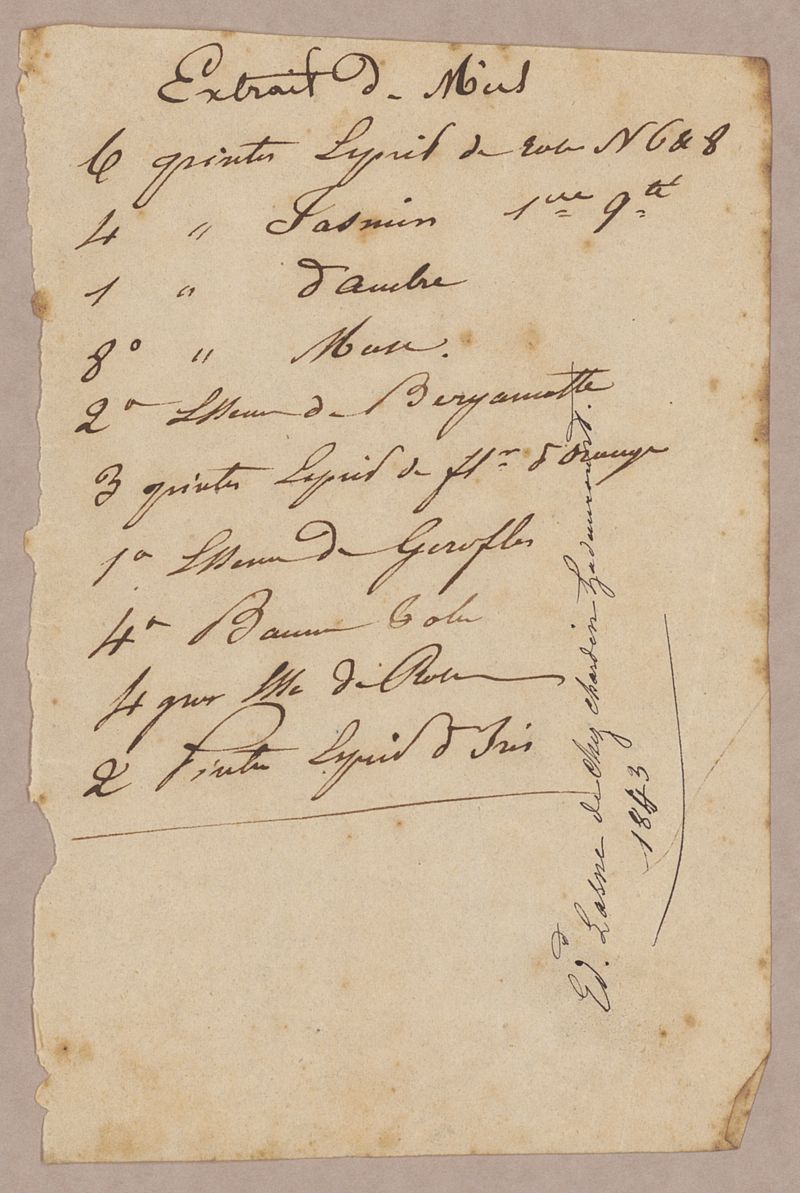 Extrait de Miel
6 pintes Esprit de rose N 6 & 8
4 " Jasmin 1re qté
1 " d'ambre
8° " Musc.
2° Essence de Bergamotte
3 pintes Esprit de flr d'orange
1° Essence de Gerofles
4° Baume Tolu
4 gros Esse de Rose
2 Pintes Esprit d'Iris
Ed. Lasne de chez chardin hadancourt.
1843